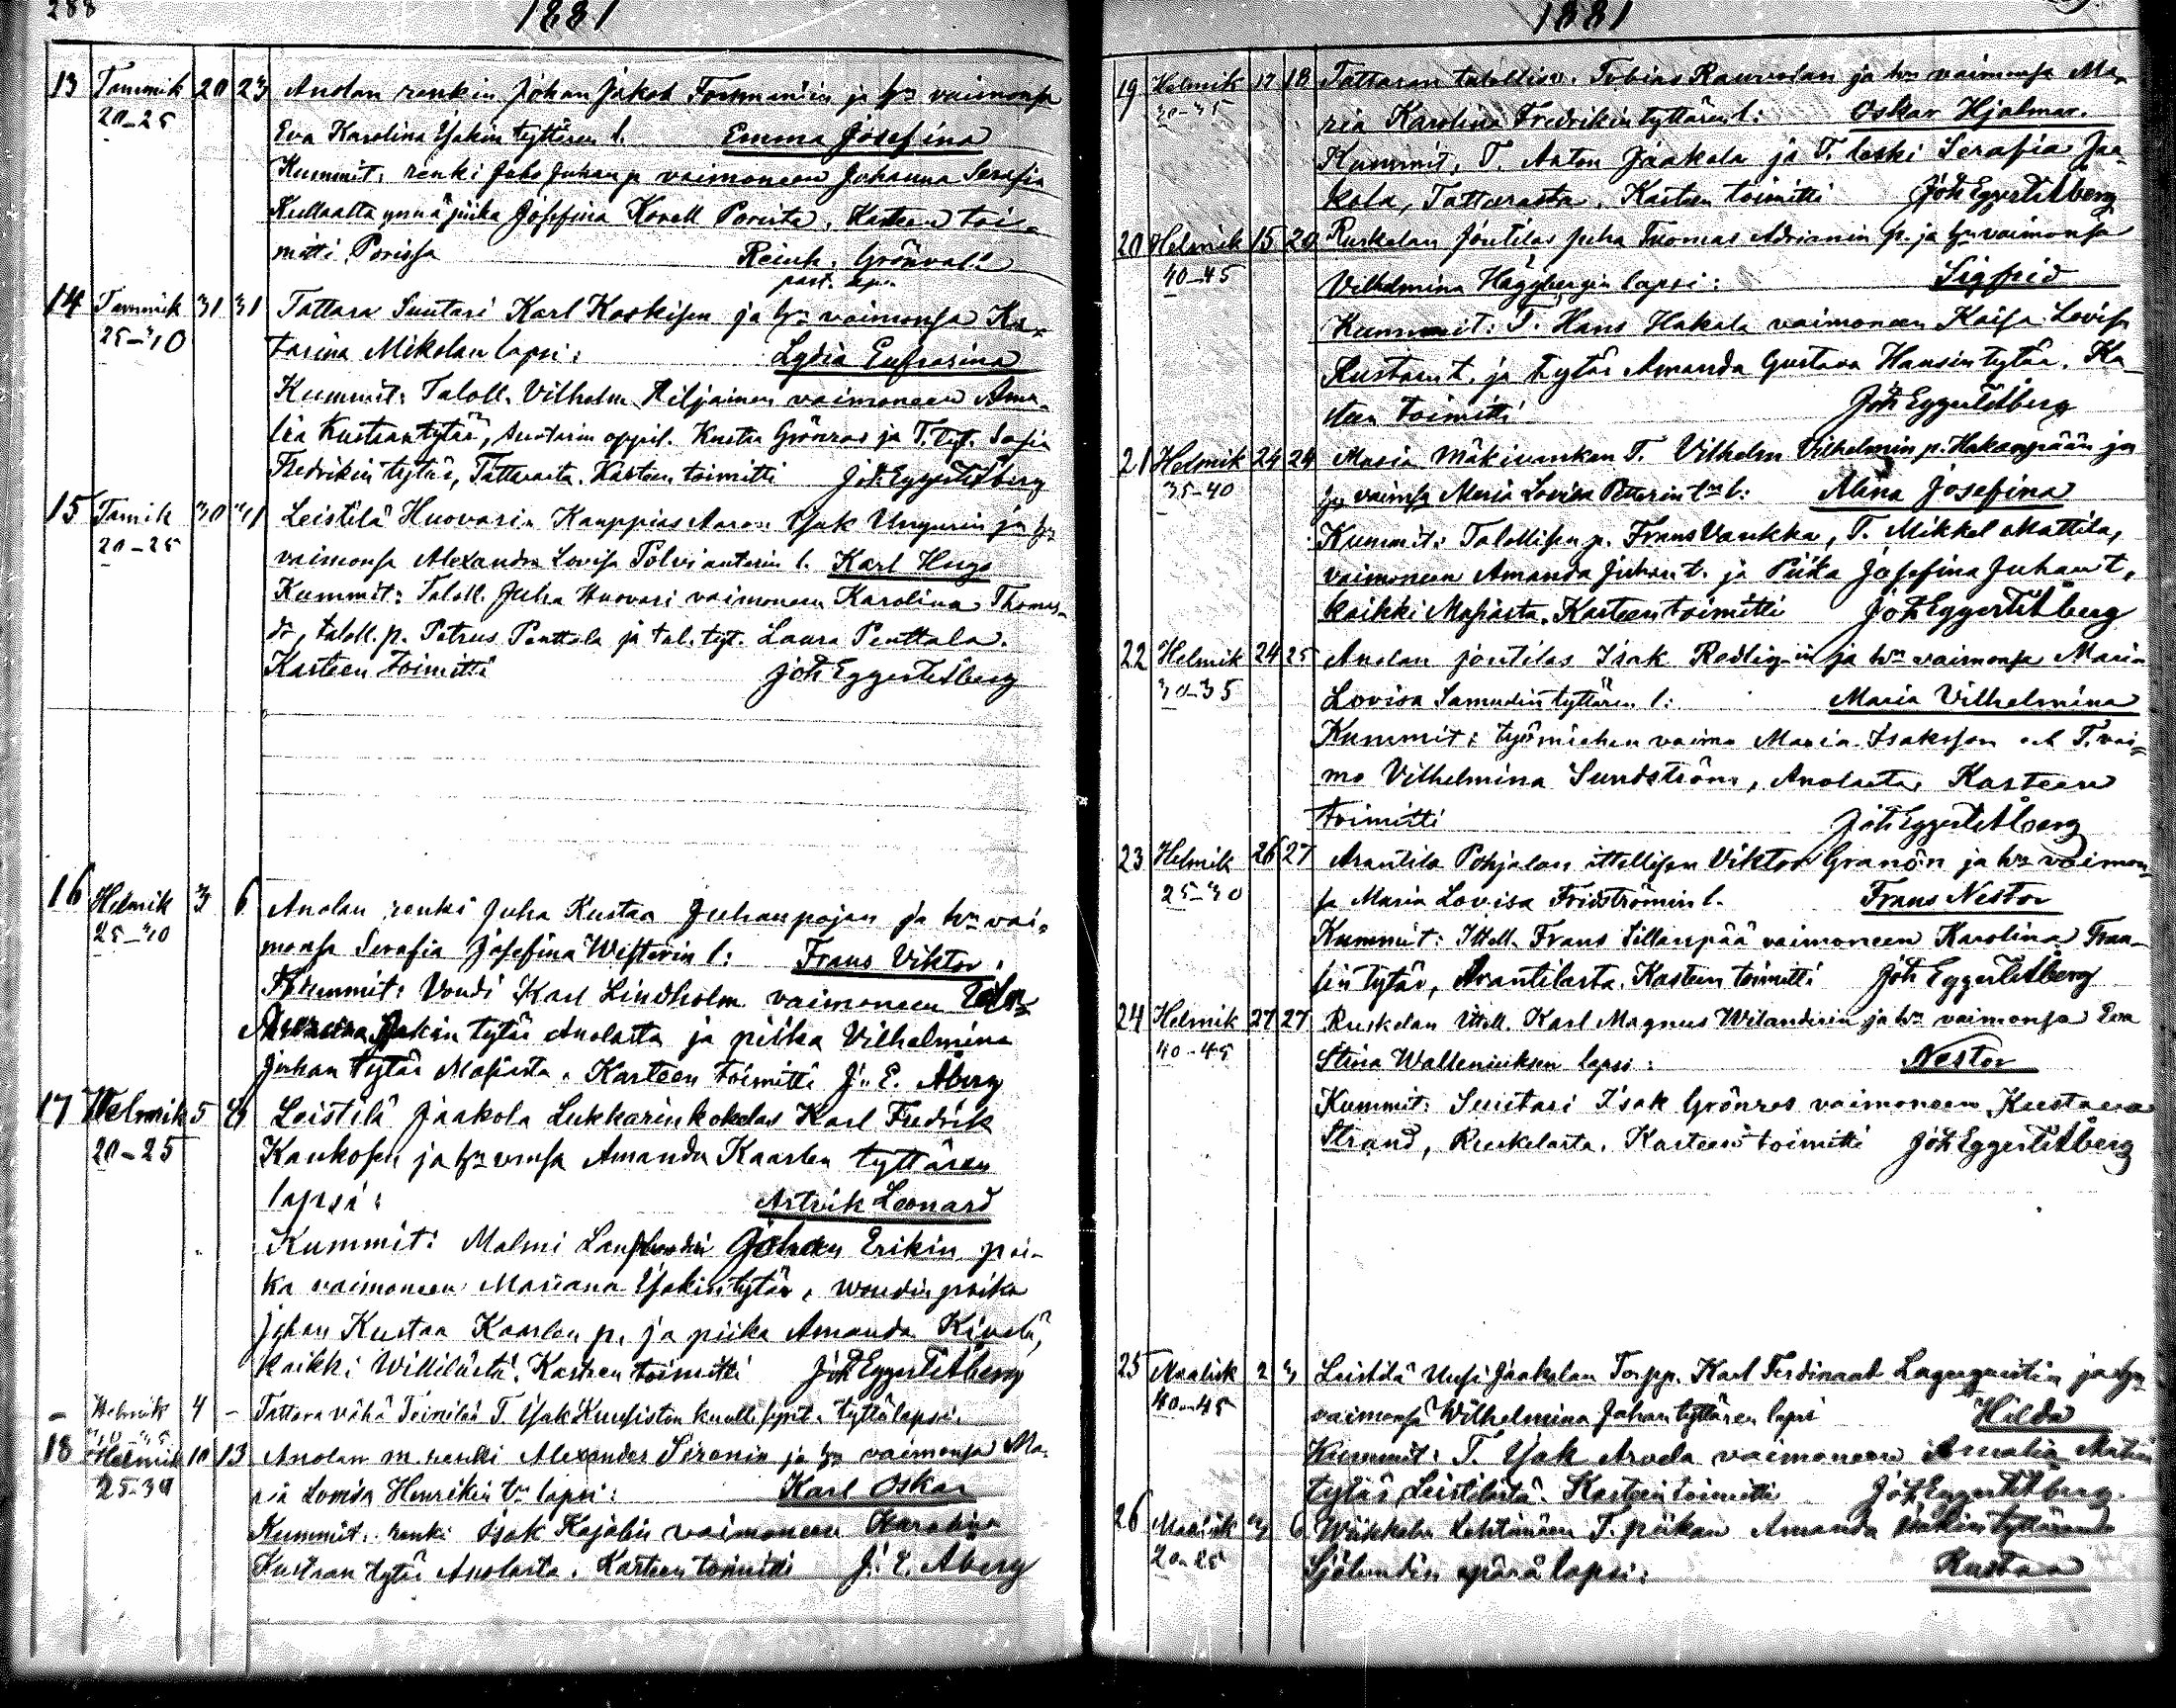 288
1881
13 Tammik 20 23 Anolan renkin Johan Jakob Forsmanin ja hn vaimonsa
20-25 Eva Karolina Isakin tyttären l. Emma Josefina
Kummit: renki Juho Juhan p. vaimoneen Johanna Serafia
Kullaalta ynnä piika Josefina Korell Porista. Kasteen toi-
mitti Porissa Reinh. Grönvall
past. apu.
14 Tammik 31 31 Tattara Suutari Karl Koskisen ja hn vaimonsa Ka-
25-30 tarina Mikolan lapsi: Lydia Eufrosina
Kummit: Taloll. Vilhelm Hiljainen vaimoneen Ama-
lia Kustaantytär, suutarin oppil. Kustaa Grönroos ja T. tyt. Sofia
Fredrikin tytär, Tattarasta. Kasteen toimitti Joh Eggert Åberg
15 Tamik 30 31 Leistilä Huovarin Kauppias Aaron Isak Ungurin ja hn
20-25 vaimonsa Alexandra Lovisa Polvianterin l. Karl Hugo
Kummit: Taloll. Juha Huovari vaimoneen Karolina Thomas
dr, taloll. p. Petrus Penttala ja tal. tyt. Laura Penttala.
Kasteen toimitti Joh Eggert Åberg
16 Helmik 3 6 Anolan renki Juha Kustaa Juhanpojan ja hn vai-
25-30 monsa Serafia Josefina Westerin l: Frans Viktor.
Kummit: Voudi Karl Lindholm vaimoneen
Isakin tytär Anolasta ja piika Vilhelmina
Juhan tytär Masiasta. Kasteen toimitti J. E. Åberg
17 Helmik 5 Leistilä Jaakola Lukkarinkokelas Karl Fredrik
20-25 Kaukosen ja hn vmsa Amanda Kaarlen tyttären
lapsi: Artvik Leonard
Kummit: Malmi Johan Erikin poi-
ka vaimoneen Mariana Isakintytär, woudin poika
Johan Kustaa Kaarlen p. ja piika Amanda Kivelä,
kaikki Willilästä. Kasteen toimitti Joh Eggert Åberg
- Helmik 4 - Tattara vähä Teinilän T. Isak Kuusiston kuoll. synt. tyttölapsi.
18 Helmik 10 13 Anolan m. renki Alexander Sirenin ja hn vaimonsa Ma-
25-30 ria Lovisa Henrikin tn lapsi: Karl Oskar
Kummit: renki Isak Kajalin vaimoneen Karolina
Kustaan tytär Anolasta. Kasteen toimitti J. E. Åberg
1881
19 Helmik 17 18 Tattaran talollisen Tobias Rauvolan ja hn vaimonsa Ma-
30-35 ria Karolina Fredrikin tyttären l: Oskar Hjalmar.
Kummit, T. Anton Jaakola ja T. leski Serafia Jaa-
kola, Tattarasta. Kasteen toimitti Joh Eggert Åberg
20 Helmik 15 20 Ruskelan Joutilas Juha Tuomas Adrianin p. ja hn vaimonsa
40-45 Vilhelmina Häggbergin lapsi: Sigfrid
Kummit: T. Hans Hakala vaimoneen Kaisa Lovisa
Kustaan t. ja tytär Amanda Gustava Hansin tytär. Ka-
steen toimitti Joh Eggert Åberg
21 Helmik 24 24 Masia Mäkivankan T. Vilhelm Vilhelmin p. Hakanpään ja
35-40 hn vaimsa Maria Lovisa Petterin tn l: Alina Josefina
Kummit: Talollisen p. Frans Vankka, T. Mikkel Mattila,
vaimoneen Amanda Juhan t. ja Piika Josefina Juhan t.
kaikki Masiasta. Kasteen toimitti Joh Eggert Åberg
22 Helmik 24 25 Anolan joutilas Isak Redligin ja hn vaimonsa Maria
30-35 Lovisa Samuelin tyttären l: Maria Vilhelmina
Kummit: työmiehen vaimo Maria Isaksson och T. vai-
mo Vilhelmina Sundström, Anolasta, Kasteen
toimitti Joh Eggert Åberg
23 Helmik 26 27 Arantila Pohjalan ittellisen Viktor Granön ja hn vaimon-
25-30 sa Maria Lovisa Fridströmin l. Frans Nestor
Kummit: Ittell. Frans Sillanpää vaimoneen Karolina Fran-
sin tytär, Arantilasta. Kasteen toimitti Joh Eggert Åberg
24 Helmik 27 27 Ruskelan Ittell. Karl Magnus Wilanderin ja hn vaimonsa Eva
40-45 Stina Walleniuksen lapsi: Nestor
Kummit: Suutari Isak Grönroos vaimoneen Kustava
Strand, Ruskelasta. Kasteen toimitti Joh Eggert Åberg
25 Maalisk 2 3 Leistilä Uusi Jaakolan Torpp. Karl Ferdinand Lagerqvistin ja hn
40-45 vaimonsa Wilhelmina Johan tyttären lapsi Hilda
Kummit: T. Isak Arvela vaimoneen Amalia Matin
tytär, Leistilästä. Kasteen toimitti Joh Eggert Åberg.
26 Maalisk 3 6 Lehtimäen T. piikan Amanda Isakin tyttären
20-25 Sjölundin äpärä lapsi: Kustaa